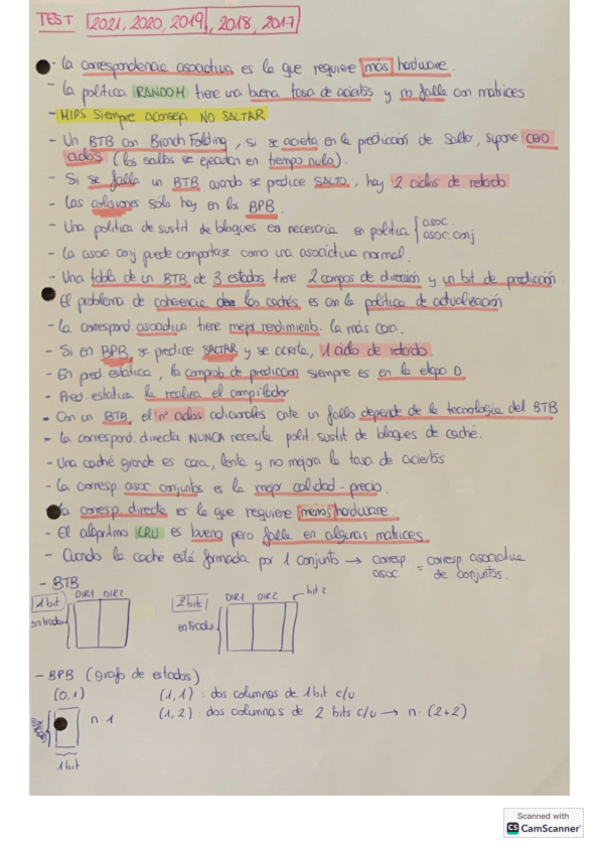 TEST 2021, 2020, 2019, 2018, 2017
- La correspondencia asociativa es la que requiere más hardware.
- La política RANDOM tiene una buena tasa de aciertos y no falla con matrices
- MIPS siempre aconseja NO SALTAR
- Un BTB con Branch Folding, si se acierta en la predicción de salto, supone CERO
ciclos (los saltos se ejecutan en tiempo nulo).
- Si se falla un BTB cuando se predice SALTO, hay 2 ciclos de retardo
- Las colisiones sólo hay en los BPB.
- Una política de sustit de bloques es necesaria en política { asoc.
asoc. conj
- La asoc conj puede comportarse como una asociativa normal.
- Una tabla de un BTB de 3 estados tiene 2 campos de dirección y un bit de predicción.
- El problema de coherencia de las cachés es con la política de actualización
- La correspond. asociativa tiene mejor rendimiento. La más cara.
- Si en BPB, se predice SALTAR y se acierta, 1 ciclo de retardo.
- En pred. estática, la comprob de prediccion siempre es en la etapa D.
- Pred. estatica la realiza el compilador
- Con un BTB, el nº ciclos adicionales ante un fallo depende de la tecnología del BTB
- La correspond. directa NUNCA necesita polit. sustit de bloques de caché.
- Una caché grande es cara, lenta y no mejora la tasa de aciertos
- La corresp. asoc conjuntos es la mejor calidad-precio.
- La corresp. directa es la que requiere menos hardware.
- El algoritmo LRU es bueno pero falla en algunas matrices.
- Cuando la caché esté formada por 1 conjunto → corresp asoc = corresp. asociativa de conjuntos.
- BTB
1 bit DIR1 DIR2 2 bits DIR1 DIR2 bit 2
entradas entradas
- BPB (grafo de estados)
(0,1) (1,1): dos columnas de 1 bit c/u
n·1 (1,2): dos columnas de 2 bits c/u → n·(2+2)
1 bit
Scanned with
CS CamScanner